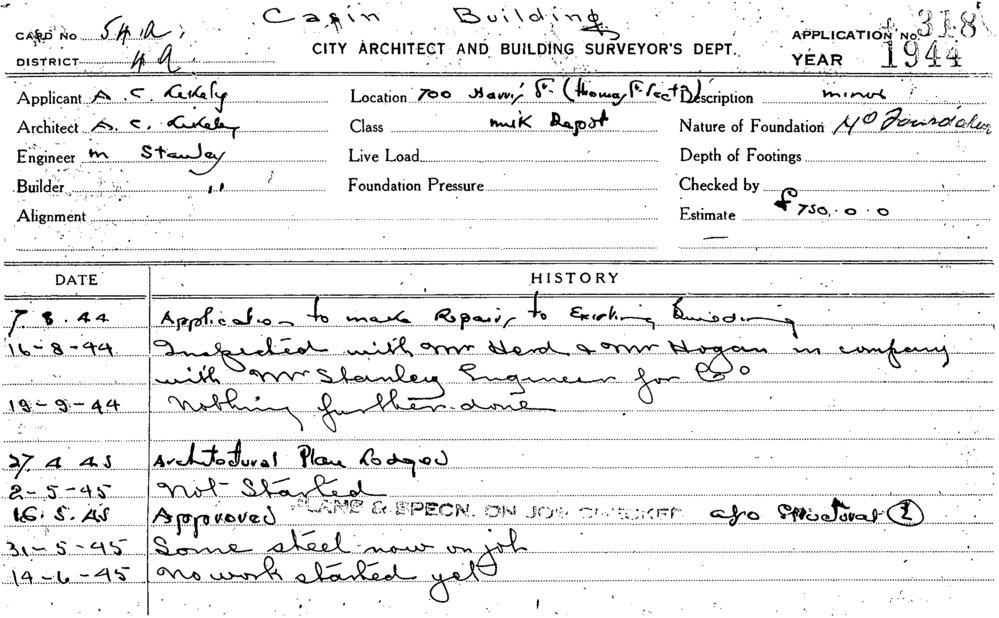 Building
CARD No 54A.
APPLICATION No. 318
CITY ARCHITECT AND BUILDING SURVEYOR'S DEPT.
DISTRICT 4A
YEAR 1944
Applicant A. C. Location 700 St. (Thomas Description minor
Architect A. C. Class milk Depot Nature of Foundation No Foundation
Engineer M Stanley Live Load Depth of Footings
Builder " Foundation Pressure Checked by
Alignment Estimate £750.0.0
DATE HISTORY
7.8.44 Application to make Repairs to Existing Building
16-8-44 Inspected with Mr Herd & Mr Hogan in company
with Mr Stanley Engineer for Co
19-9-44 Nothing further done
27.4.45 Architectural Plan Lodged
2-5-45 Not Started
16.5.45 Approved PLANS & SPECN. ON JOB CHECKED also Structural 2
31-5-45 Some steel now on job
14-6-45 No work started yet